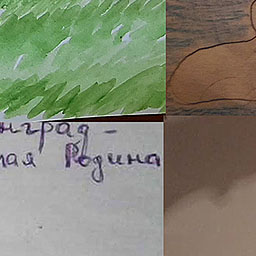 нград -
лая Родина